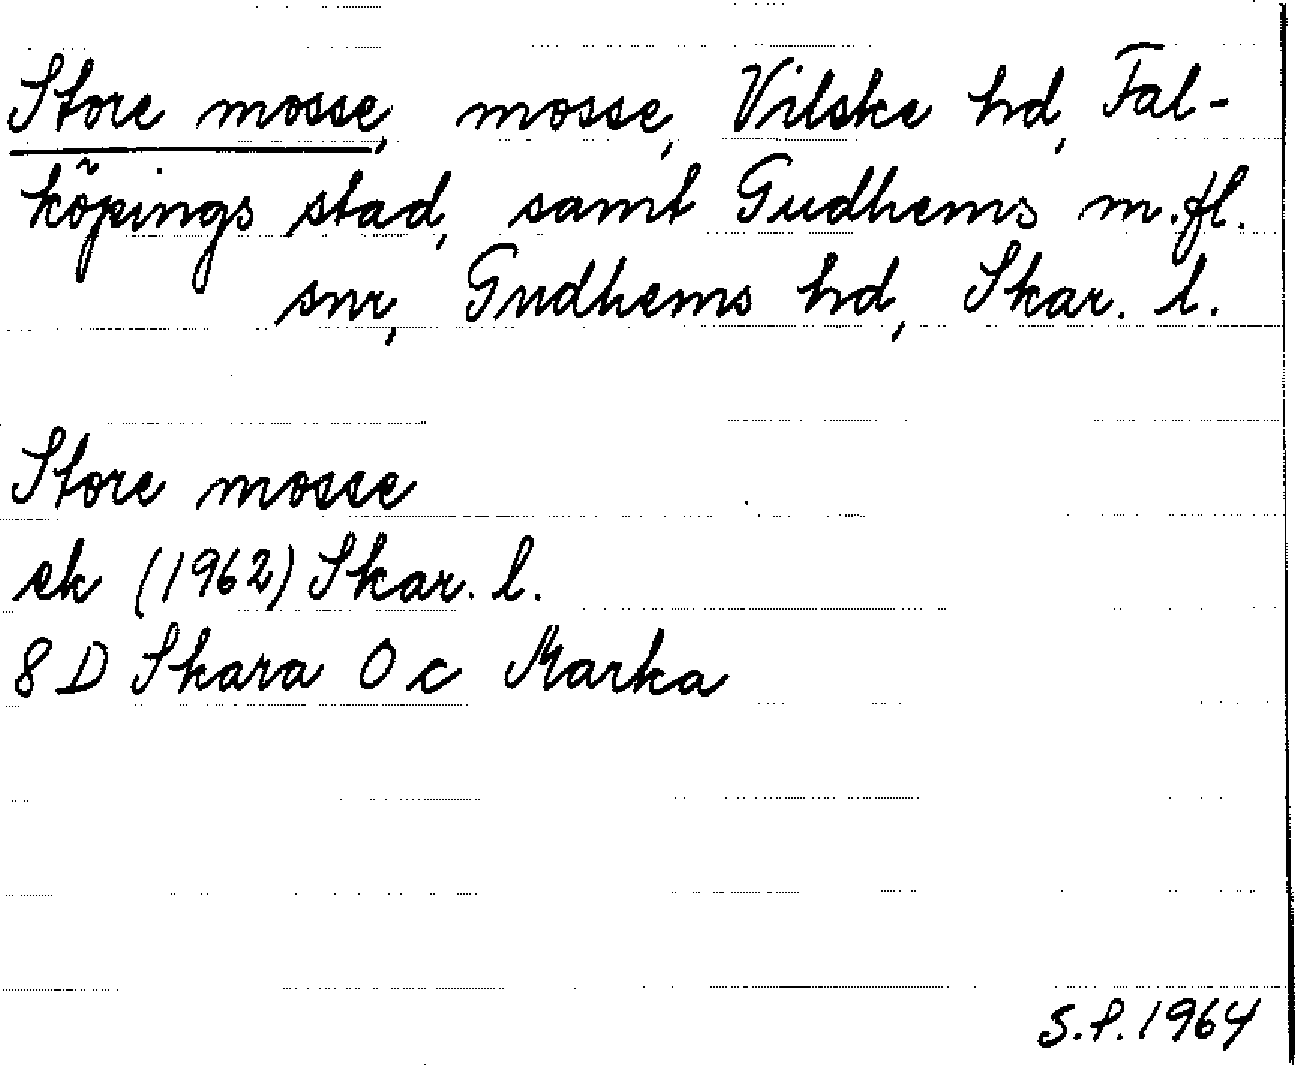 Store mosse, mosse, Vilske hd, Fal-
köpings stad, samt Gudhems m.fl.
snr, Gudhems hd, Skar. l.
Store mosse
ek (1962) Skar. l.
8 D Skara O c Marka
S.P. 1964